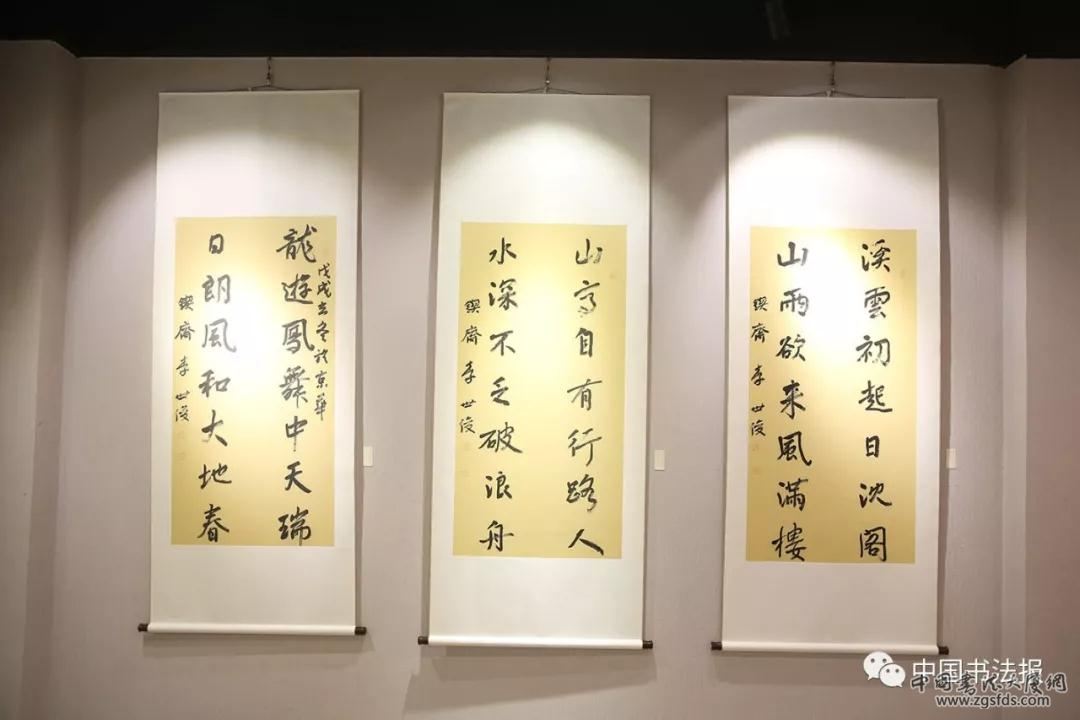 龍遊鳳舞中天瑞
戊戌玄冬於京華
日朗風和大地春
鍥齋李世俊
山高自有行路人
水深不乏破浪舟
鍥齋李世俊
溪雲初起日沈閣
山雨欲来風滿樓
鍥齋李世俊
中国书法报
中國書法大厦網
www.zgsfds.com